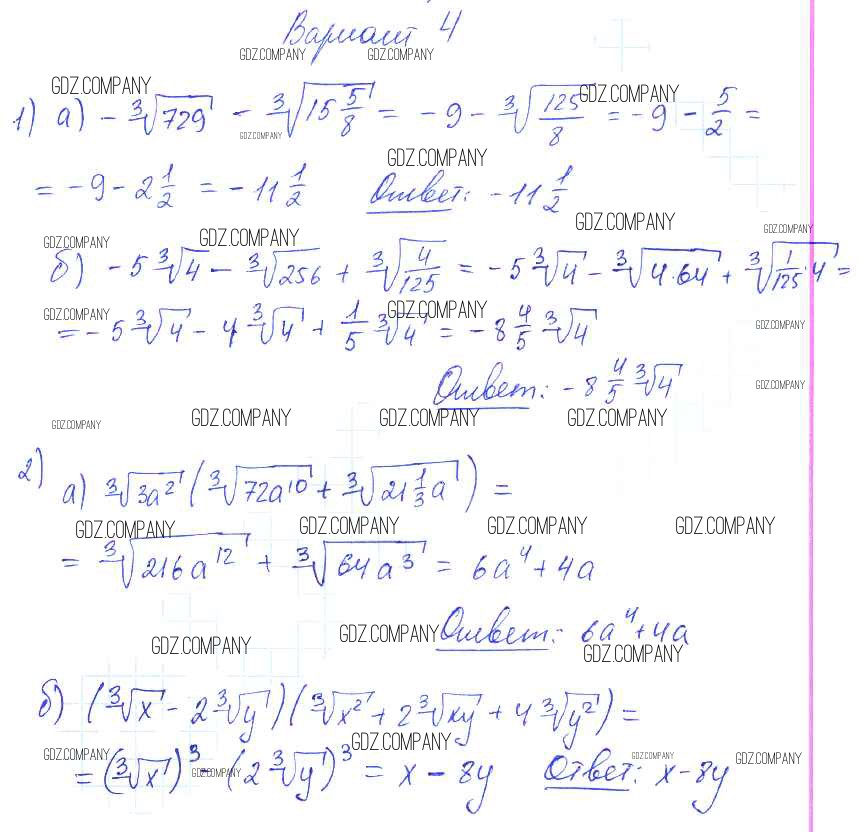 Вариант 4
GDZ.COMPANY GDZ.COMPANY
GDZ.COMPANY GDZ.COMPANY
1) а) -∛729 - ∛(15 5/8) = -9 - ∛(125/8) = -9 - 5/2 =
GDZ.COMPANY GDZ.COMPANY
= -9 - 2 1/2 = -11 1/2 Ответ: -11 1/2
GDZ.COMPANY GDZ.COMPANY
GDZ.COMPANY GDZ.COMPANY
б) -5∛4 - ∛256 + ∛(4/125) = -5∛4 - ∛(4·64) + ∛(1/125·4) =
GDZ.COMPANY GDZ.COMPANY GDZ.COMPANY
= -5∛4 - 4∛4 + 1/5∛4 = -8 4/5 ∛4
Ответ: -8 4/5 ∛4
GDZ.COMPANY
GDZ.COMPANY GDZ.COMPANY GDZ.COMPANY GDZ.COMPANY
2) а) ∛(3a²) (∛(72a¹⁰) + ∛(21 1/3 a)) =
GDZ.COMPANY GDZ.COMPANY GDZ.COMPANY GDZ.COMPANY
= ∛(216a¹²) + ∛(64a³) = 6a⁴ + 4a
GDZ.COMPANY GDZ.COMPANY Ответ: 6a⁴ + 4a
GDZ.COMPANY
б) (∛x - 2∛y)(∛x² + 2∛xy + 4∛y²) =
GDZ.COMPANY GDZ.COMPANY GDZ.COMPANY GDZ.COMPANY
= (∛x)³ - (2∛y)³ = x - 8y Ответ: x - 8y
GDZ.COMPANY